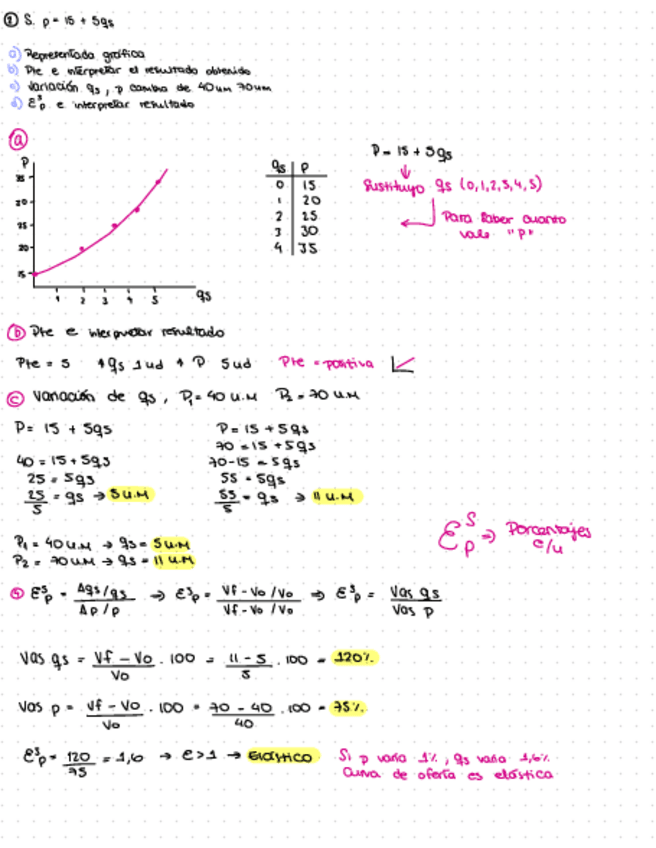 ① S. p = 15 + 5qs
a) Representado gráfica
b) Pte e interpretar el resultado obtenido
c) Variación qs, p cambia de 40 um 70 um
d) Eˢp e interpretar resultado
ⓐ
P
35
30
25
20
15
1 2 3 4 5 qs
qs | P
0 | 15
1 | 20
2 | 25
3 | 30
4 | 35
P = 15 + 5qs
↓
Sustituyo qs (0,1,2,3,4,5)
Para saber cuanto
vale "P"
ⓑ Pte e interpretar resultado
Pte = 5 ↑qs 1ud ↑ P 5ud Pte = positiva
ⓒ Variación de qs, P₁ = 40 u.m P₂ = 70 u.m
P = 15 + 5qs
40 = 15 + 5qs
25 = 5qs
25/5 = qs → 5 u.m
P = 15 + 5qs
70 = 15 + 5qs
70-15 = 5qs
55 = 5qs
55/5 = qs → 11 u.m
P₁ = 40 u.m → qs = 5 u.m
P₂ = 70 u.m → qs = 11 u.m
Eˢp ⇒ Porcentajes
c/u
ⓓ Eˢp = Δqs/qs / Δp/p → Eˢp = Vf - Vo / Vo / Vf - Vo / Vo ⇒ Eˢp = Var qs / Var p
Var qs = Vf - Vo / Vo · 100 = 11 - 5 / 5 · 100 = 120%
Var p = Vf - Vo / Vo · 100 = 70 - 40 / 40 · 100 = 75%
Eˢp = 120/75 = 1,6 → E>1 → Elástico
Si p varia 1%, qs varia 1,6%
Curva de oferta es elástica